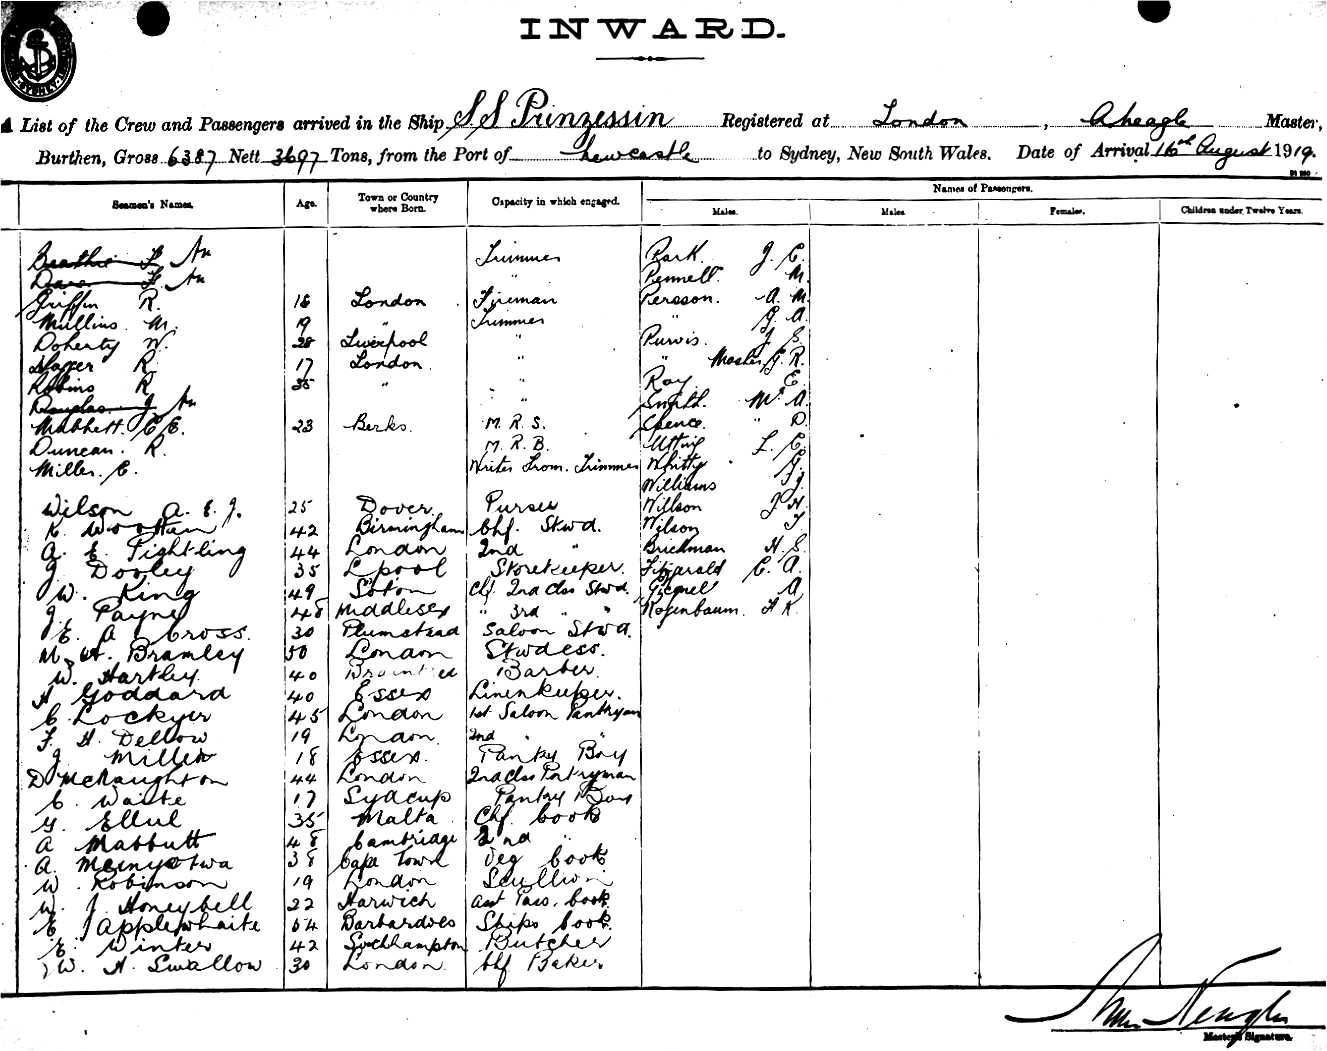 INWARD.
SYDNEY
A List of the Crew and Passengers arrived in the Ship S.S. Prinzessin Registered at London, Master,
Burthen, Gross 6387 Nett 3697 Tons, from the Port of Newcastle to Sydney, New South Wales. Date of Arrival 16th August 1919.
Names of Passengers.
Seamen's Names. Age. Town or Country where Born. Capacity in which engaged. Males. Males. Females. Children under Twelve Years.
Beattie F Trimmer Park. J. C.
F " Pennell M.
Griffin R. 18 London Fireman Persson. A. M.
Mullins. M. 19 " Trimmer " G. A.
Doherty W. 28 Liverpool " Purvis. J. S.
R. 17 London " " Master G. R.
Robins R 35 " " Ray. E.
Douglas J " Smith. A.
Mabbett. C. E. 23 Berks. M. R. S. Spence " D.
Duncan. R. M. R. B. Utting L. C.
Miller. C. Writer From. Trimmer Whitty J.
Williams J.
Wilson A. E. J. 25 Dover Purser Willson J H
K. Wootten 42 Birmingham Chf. Stwd. Wilson T
A. E. Pightling 44 London 2nd " Brickman H. S.
J. Dooley 35 Lpool Storekeeper. Fitzgerald C. A.
W. King 49 Soton Chf. 2nd Class Stwd. A
J. Payne 48 Middlesex " 3rd " " Rosenbaum. F. K
E. A Cross. 30 Plumstead Saloon Stwd.
M. A. Bramley 50 London Stwdess.
W. Hartley. 40 Barber
H Goddard 40 Essex Linenkeeper.
C. Lockyer 45 London 1st Saloon Pantryman
F. H. Dellow 19 London. 2nd " "
J. Miller 18 Essex. Pantry Boy
D McNaughton 44 London 2nd Class Pantryman
C. Waite 17 Sydcup Pantry Boy
G. Ellul 35 Malta Chf. Cook
A Mabbutt 48 Cambridge 2nd "
A. 38 Cape Town Veg Cook
W. Robinson 19 London Scullion
W. J. Honeybell 22 Harwich Asst Pass. Cook
E Applewhaite 54 Barbardoes Ships Cook.
E. Winter 42 Southhampton Butcher
W. H. Swallow 30 London. Chf Baker.
Master's Signature.